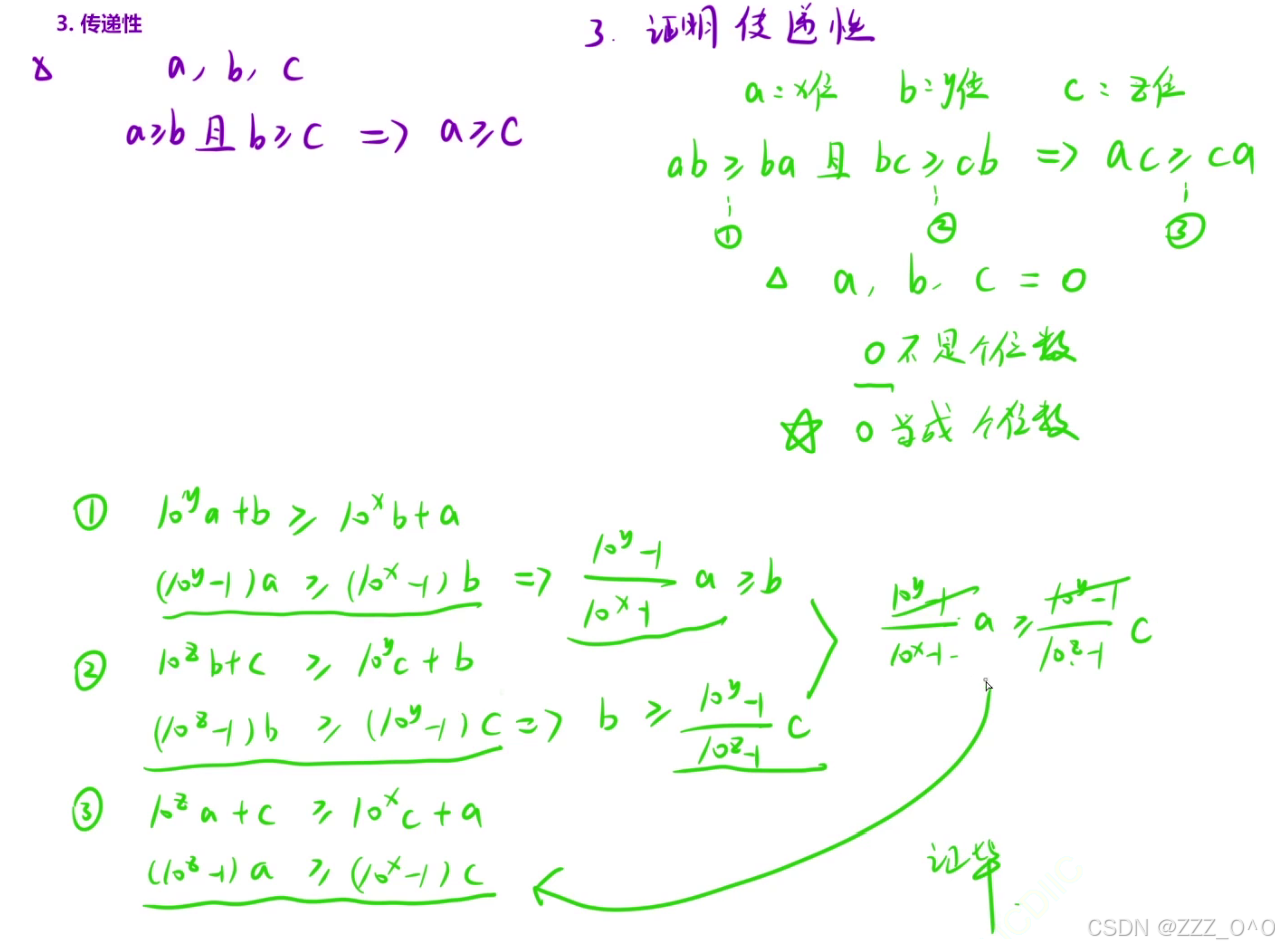 3. 传递性
a, b, c
a≥b 且 b≥c => a≥c
3. 证明传递性
a:x位 b:y位 c:z位
ab≥ba 且 bc≥cb => ac≥ca
① ② ③
△ a, b, c = 0
0 不是个位数
☆ 0 当成 个位数
① 10^y a+b ≥ 10^x b+a
(10^y-1)a ≥ (10^x-1)b => (10^y-1)/(10^x-1) a ≥ b
② 10^z b+c ≥ 10^y c+b
(10^z-1)b ≥ (10^y-1)c => b ≥ (10^y-1)/(10^z-1) c
(10^y-1)/(10^x-1) a ≥ (10^y-1)/(10^z-1) c
③ 10^z a+c ≥ 10^x c+a
(10^z-1)a ≥ (10^x-1)c
证毕
CSDN @ZZZ_O^O